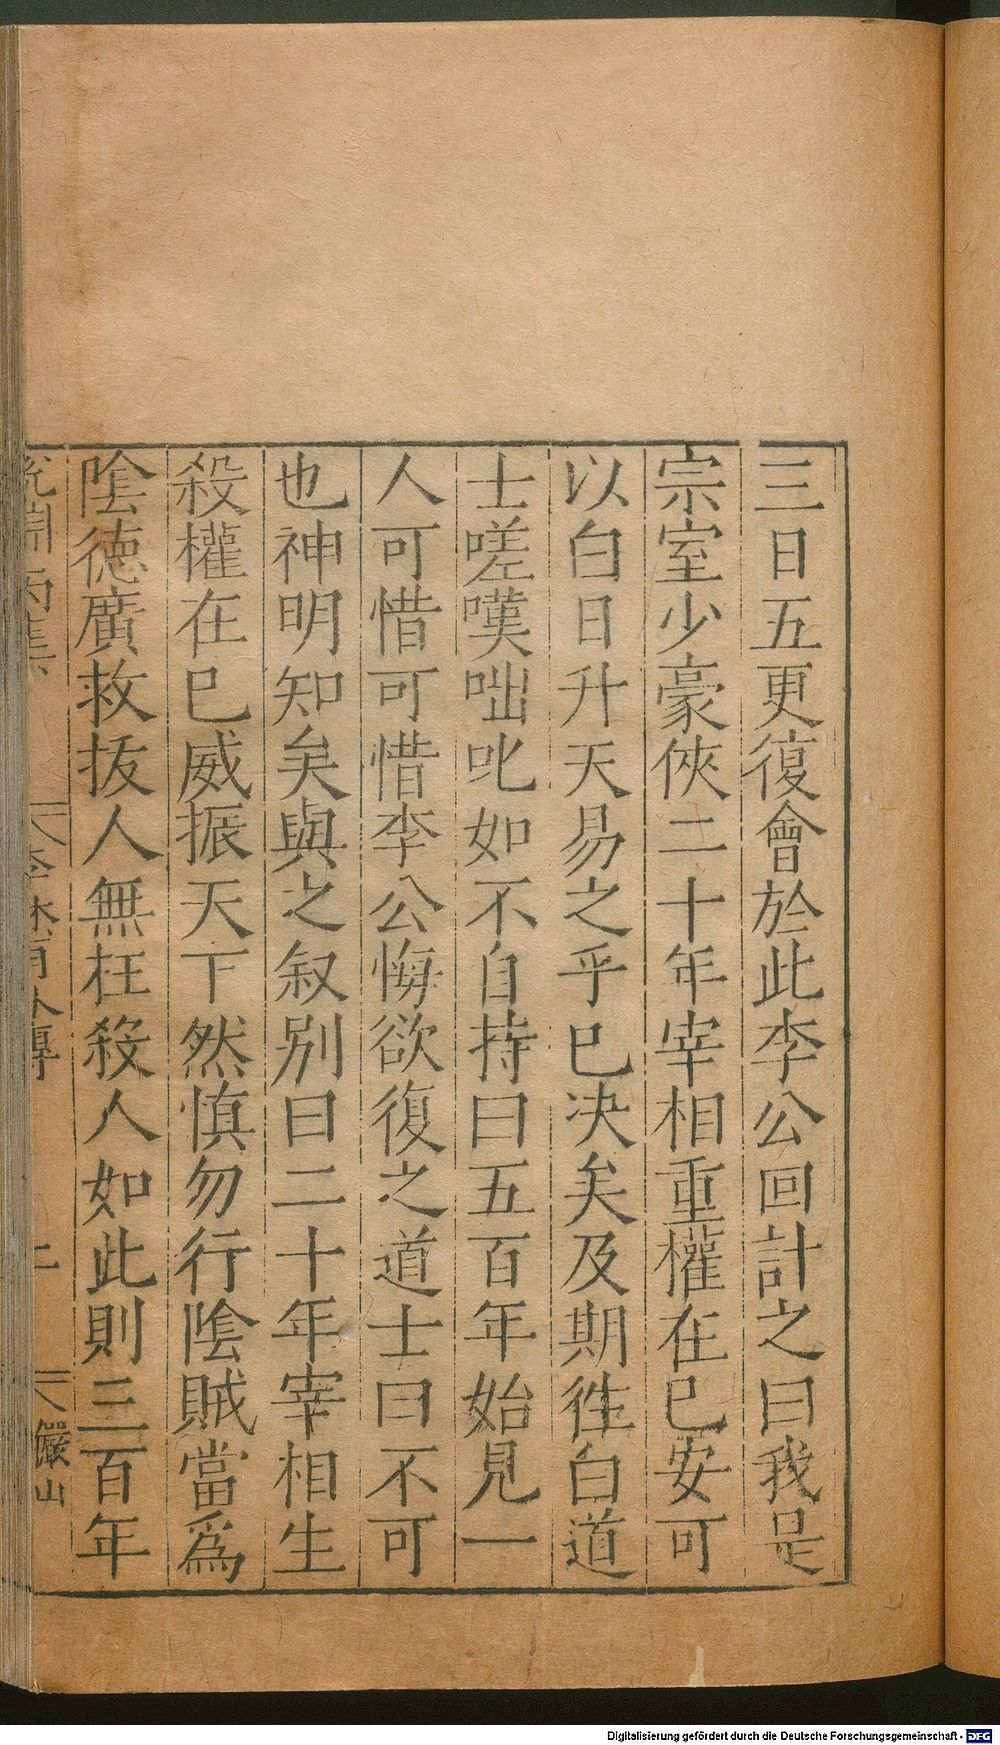 三日五更復會於此李公回計之曰我是
宗室少豪俠二十年宰相重權在已安可
以白日升天易之乎已决矣及期徃白道
士嗟嘆咄叱如不自持曰五百年始見一
人可惜可惜李公悔欲復之道士曰不可
也神明知矣與之叙别曰二十年宰相生
殺權在已威振天下然慎勿行陰賊當爲
陰德廣救拔人無枉殺人如此則三百年
儼山
Digitalisierung gefördert durch die Deutsche Forschungsgemeinschaft - DFG